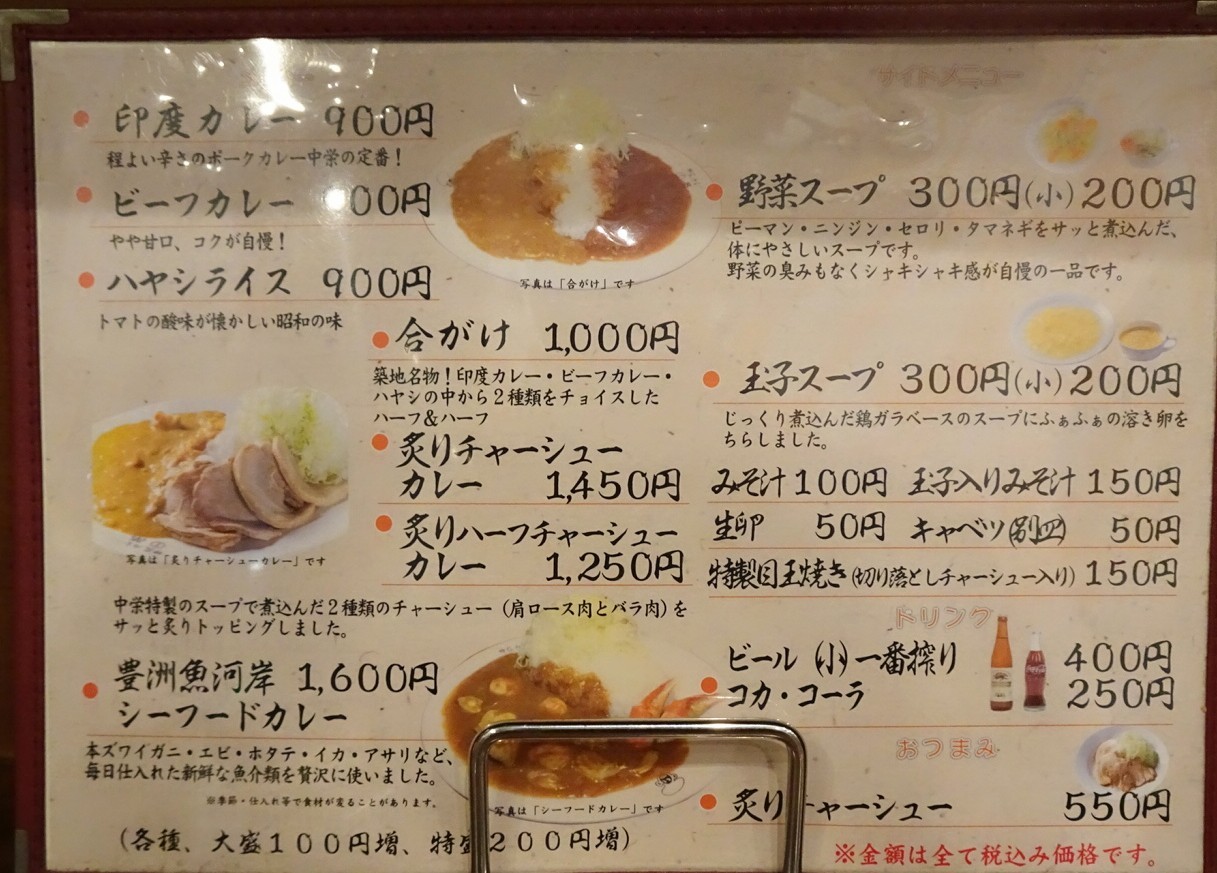 印度カレー 900円
程よい辛さのポークカレー中栄の定番！
ビーフカレー 00円
やや甘口、コクが自慢！
ハヤシライス 900円
トマトの酸味が懐かしい昭和の味
写真は「合がけ」です
合がけ 1,000円
築地名物！印度カレー・ビーフカレー・
ハヤシの中から2種類をチョイスした
ハーフ＆ハーフ
炙りチャーシュー
カレー 1,450円
炙りハーフチャーシュー
カレー 1,250円
写真は「炙りチャーシューカレー」です
中栄特製のスープで煮込んだ2種類のチャーシュー（肩ロース肉とバラ肉）を
サッと炙りトッピングしました。
豊洲魚河岸 1,600円
シーフードカレー
本ズワイガニ・エビ・ホタテ・イカ・アサリなど、
毎日仕入れた新鮮な魚介類を贅沢に使いました。
※季節・仕入れ等で食材が変ることがあります。
写真は「シーフードカレー」です
（各種、大盛100円増、特盛200円増）
サイドメニュー
野菜スープ 300円(小)200円
ピーマン・ニンジン・セロリ・タマネギをサッと煮込んだ、
体にやさしいスープです。
野菜の臭みもなくシャキシャキ感が自慢の一品です。
玉子スープ 300円(小)200円
じっくり煮込んだ鶏ガラベースのスープにふぁふぁの溶き卵を
ちらしました。
みそ汁100円 玉子入りみそ汁150円
生卵 50円 キャベツ(別皿) 50円
特製目玉焼き(切り落としチャーシュー入り)150円
ドリンク
ビール (小)一番搾り 400円
コカ・コーラ 250円
おつまみ
炙り ャーシュー 550円
※金額は全て税込み価格です。